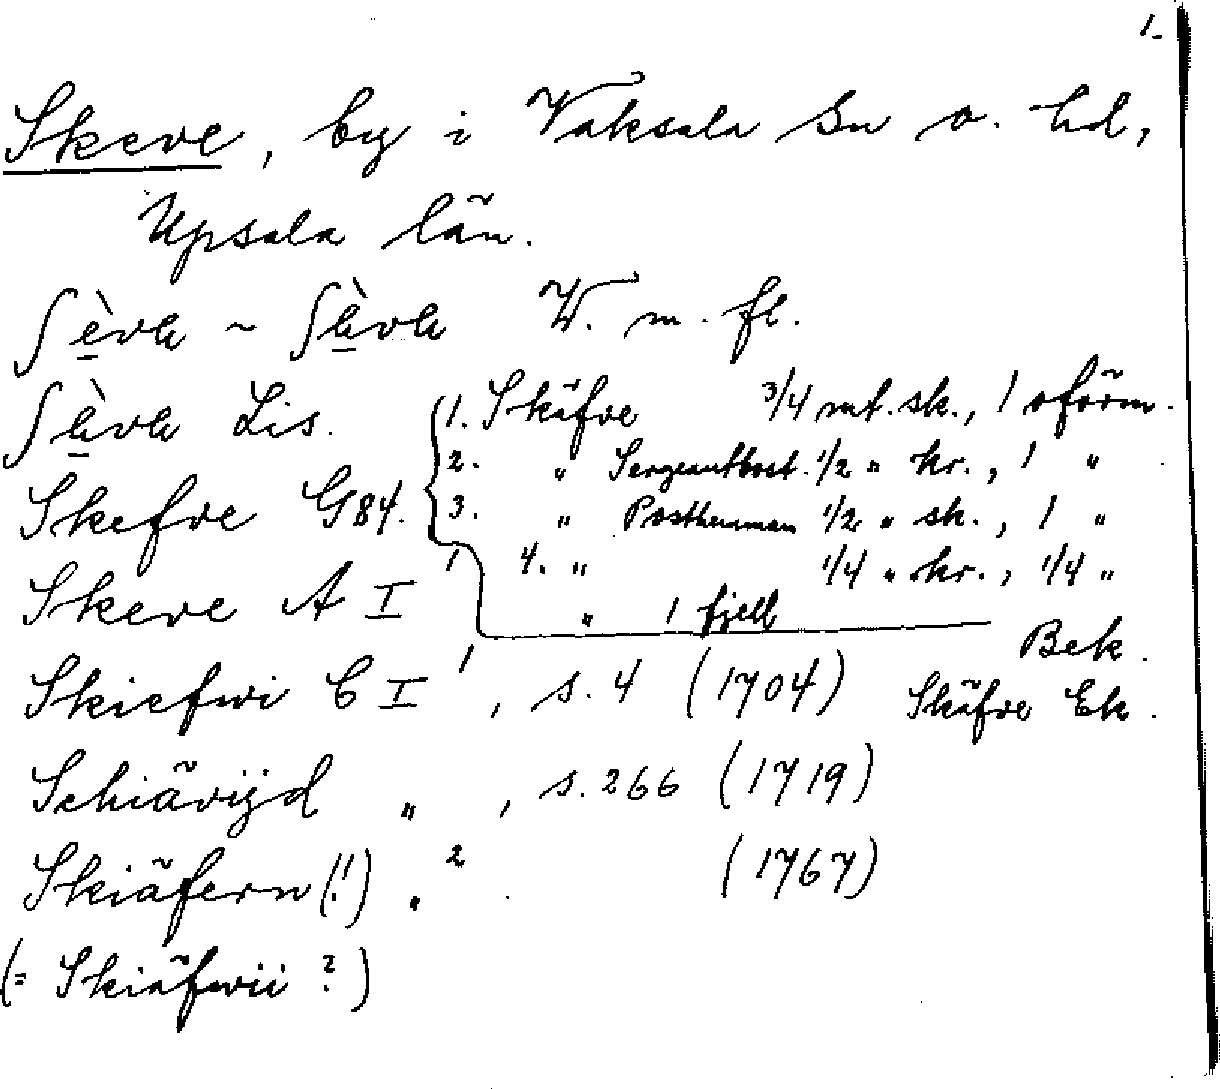 1.
Skeve, by i Vaksala sn o. hd,
Upsala län.
ʃèvɑ ~ ʃæ̀vɑ W. m. fl.
ʃæ̀vɑ Lis.
Skefve G84.
1. Skäfve 3/4 mt. sk., 1 oförm.
2. " Sergeantbost. 1/2 " kr., 1 "
3. " Posthemman 1/2 " sk., 1 "
4. " 1/4 " kr., 1/4 "
" 1 fjell
Bek.
Skäfve Ek.
Skeve A I 1
Skiefwi C I 1, s. 4 (1704)
Schiävijd " , s. 266 (1719)
Skiäfern (!) " 2 (1767)
(= Skiäfwii ?)